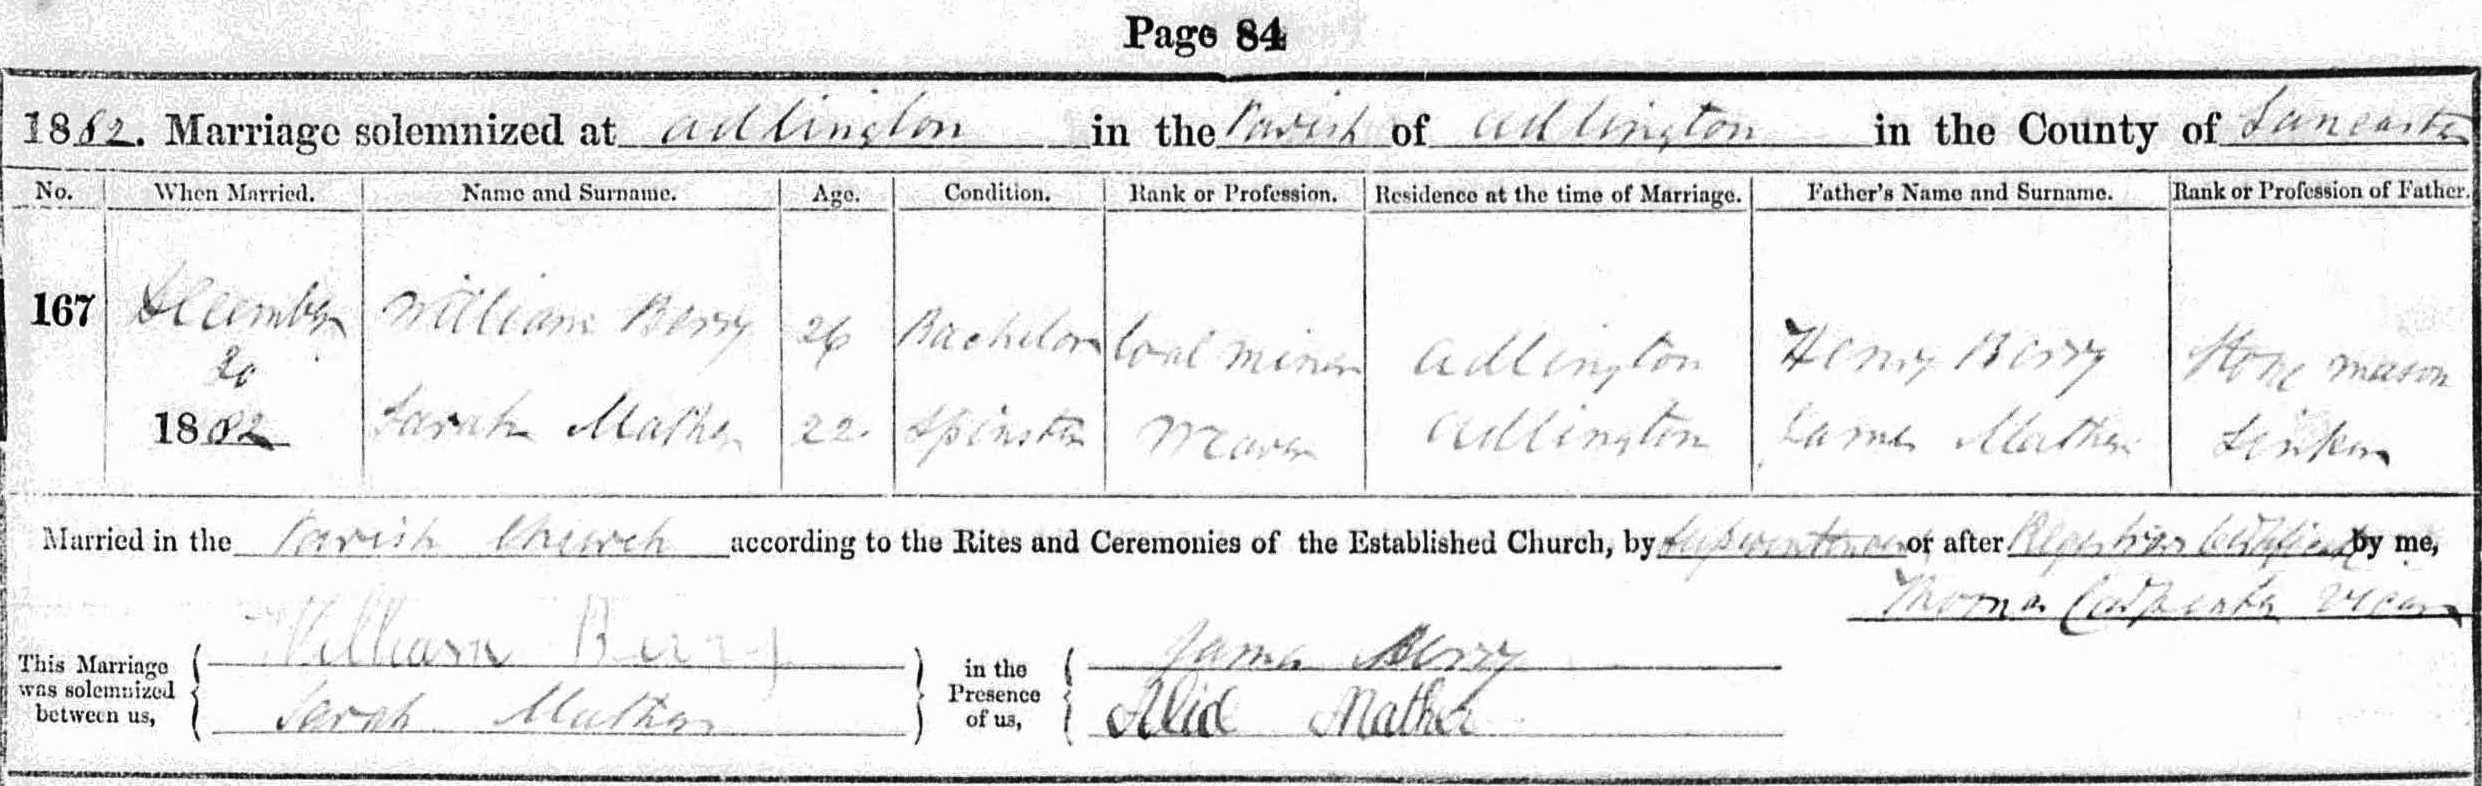 Page 84
1882. Marriage solemnized at Adlington in the Parish of Adlington in the County of Lancaster
No. When Married. Name and Surname. Age. Condition. Rank or Profession. Residence at the time of Marriage. Father's Name and Surname. Rank or Profession of Father.
167 December 20 1882 William Berry 26 Bachelor Coal miner Adlington Henry Berry Stone mason
Sarah Mather 22 Spinster Weaver Adlington James Mather Sinker
Married in the Parish Church according to the Rites and Ceremonies of the Established Church, by or after Registrars Certificate by me,
Thomas Carpenter Vicar
This Marriage was solemnized between us, William Berry Sarah Mather in the Presence of us, James Berry Mather